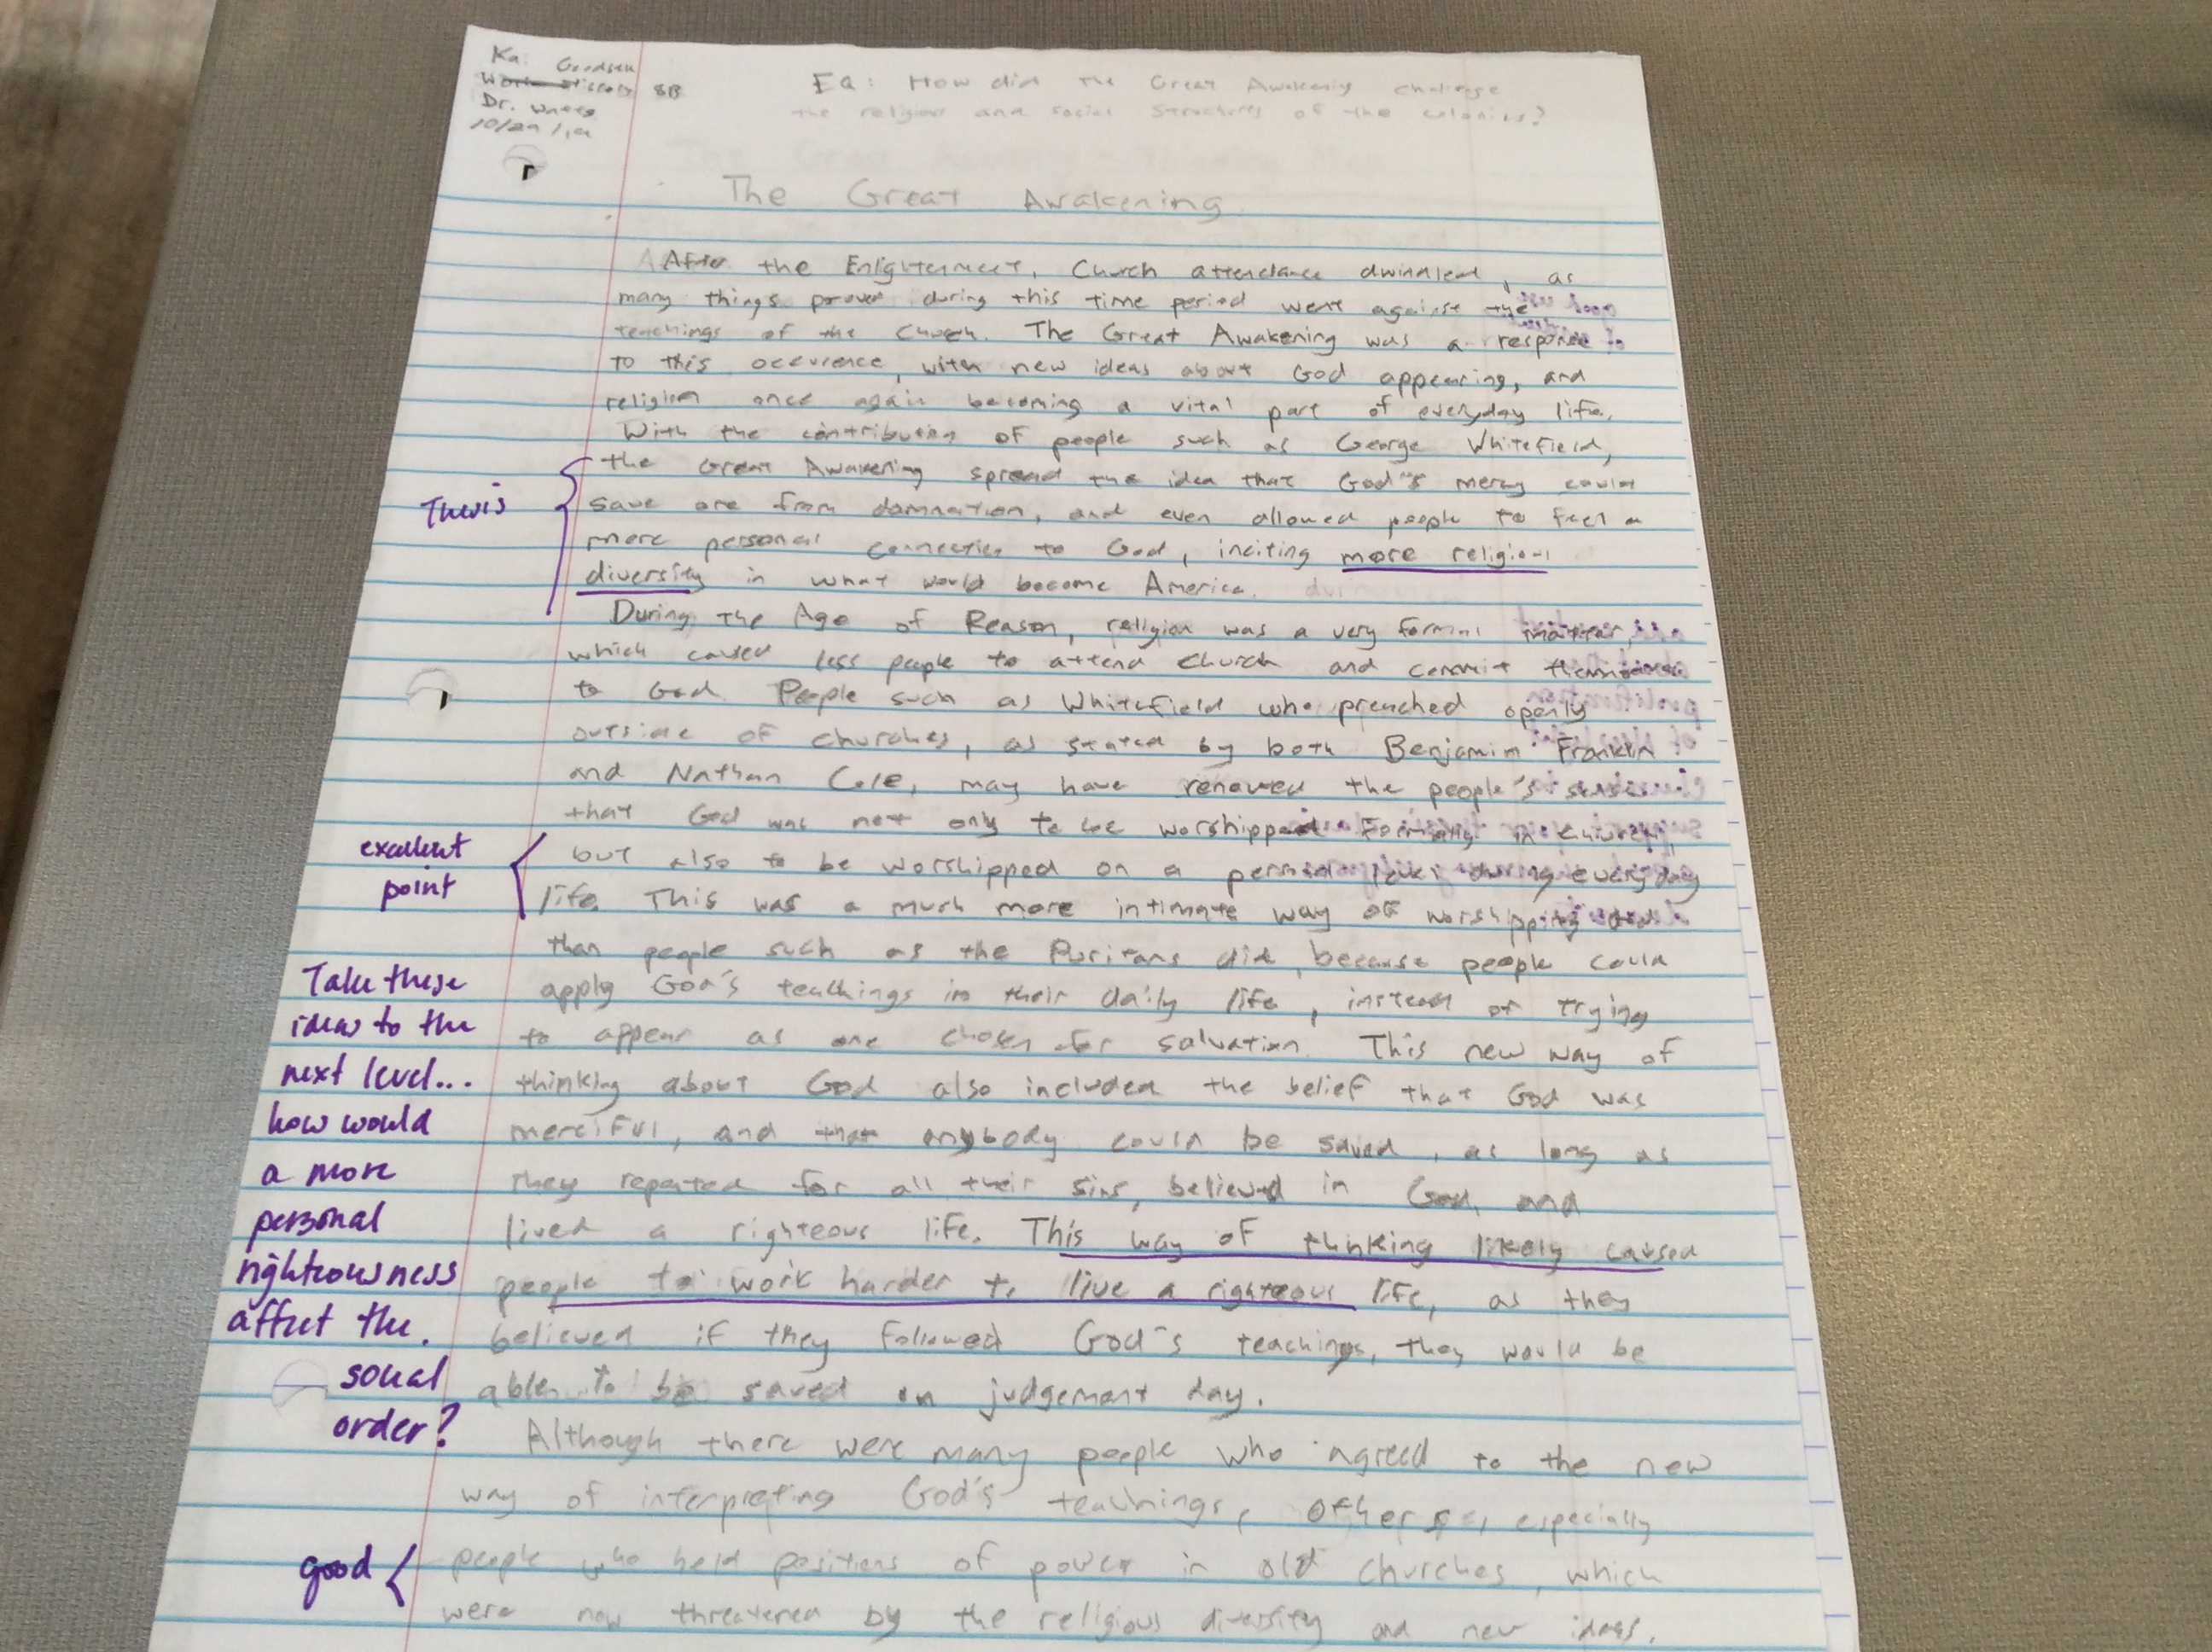 Kai Goodsen
World History 8B
Dr. Watts
10/29
EQ: How did the Great Awakening challenge
the religious and social structures of the colonies?
The Great Awakening
After the Enlightenment, Church attendance dwindled, as
many things proven during this time period went against the
teachings of the Church. The Great Awakening was a response
to this occurence, with new ideas about God appearing, and
religion once again becoming a vital part of everyday life.
With the contribution of people such as George Whitefield,
the Great Awakening spread the idea that God's mercy could
Thesis
save one from damnation, and even allowed people to feel a
more personal connection to God, inciting more religious
diversity in what would become America.
During the Age of Reason, religion was a very formal matter,
which caused less people to attend Church and commit themselves
to God. People such as Whitefield who preached openly
outside of churches, as stated by both Benjamin Franklin
and Nathan Cole, may have renewed the people's sense
that God was not only to be worshipped formally in church,
excellent
point
but also to be worshipped on a personal level during everyday
life. This was a much more intimate way of worshipping God
than people such as the Puritans did, because people could
apply God's teachings in their daily life, instead of trying
to appear as one chosen for salvation. This new way of
thinking about God also included the belief that God was
merciful, and that anybody could be saved, as long as
they repented for all their sins, believed in God, and
lived a righteous life. This way of thinking likely caused
people to work harder to live a righteous life, as they
believed if they followed God's teachings, they would be
able to be saved on judgement day.
Take these
ideas to the
next level...
how would
a more
personal
righteousness
affect the
social
order?
Although there were many people who agreed to the new
way of interpreting God's teachings, others, especially
good
people who held positions of power in old churches, which
were now threatened by the religious diversity and new ideas.